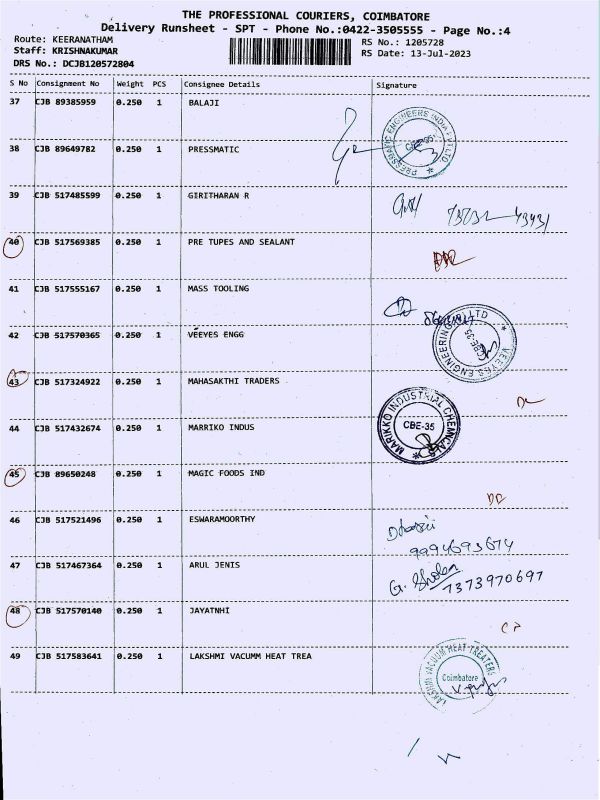 THE PROFESSIONAL COURIERS, COIMBATORE
Delivery Runsheet - SPT - Phone No.:0422-3505555 - Page No.:4
Route: KEERANATHAM
RS No.: 1205728
Staff: KRISHNAKUMAR
RS Date: 13-Jul-2023
DRS No.: DCJB120572804
S No Consignment No Weight PCS Consignee Details Signature
37 CJB 89385959 0.250 1 BALAJI
38 CJB 89649782 0.250 1 PRESSMATIC
PRESSMATIC ENGINEERS INDIA PVT LTD
CBE-35
39 CJB 517485599 0.250 1 GIRITHARAN R
40 CJB 517569385 0.250 1 PRE TUPES AND SEALANT
41 CJB 517555167 0.250 1 MASS TOOLING
42 CJB 517570365 0.250 1 VEEYES ENGG
VEEYES ENGINEERING LTD
CBE-35
43 CJB 517324922 0.250 1 MAHASAKTHI TRADERS
44 CJB 517432674 0.250 1 MARRIKO INDUS
MARIKKO INDUSTRIAL CHEMICALS
CBE-35
45 CJB 89650248 0.250 1 MAGIC FOODS IND
46 CJB 517521496 0.250 1 ESWARAMOORTHY
9994693674
47 CJB 517467364 0.250 1 ARUL JENIS
G. Shoba
7373970697
48 CJB 517570140 0.250 1 JAYATNHI
49 CJB 517583641 0.250 1 LAKSHMI VACUMM HEAT TREA
LAKSHMI VACUUM HEAT TREATERS
Coimbatore